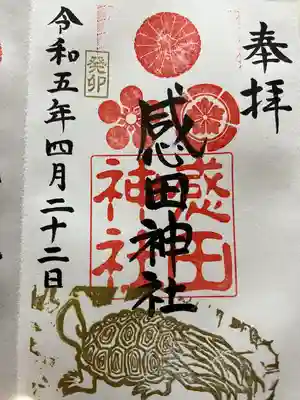 奉拝
感田神社
感田
神社
令和五年四月二十二日
癸卯